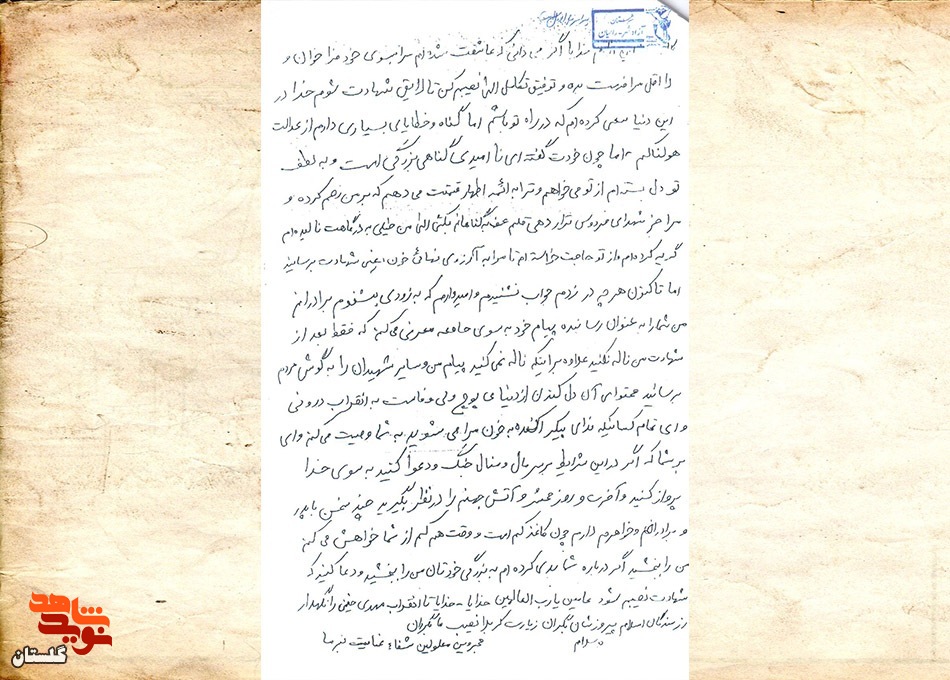 خدایا اگر می دانی که عاشقت شده ام مرا بسوی خود فرا خوان و
را اقل مرا فرصت بده و توفیق تکامل الهی نصیبم کن تا لایق شهادت شوم خدا در
این دنیا سعی کرده ام که در راه تو باشم اما گناه و خطایای بسیاری دارم از عدالت
هولناکم، اما چون خودت گفته ای نا امیدی گناهی بزرگی است و به لطف
تو دل بسته ام از تو می خواهم و ترا به ائمه اطهار قسمت می دهم که بر من رحم کرده و
مرا جز شهدای فردوس قرار دهی قلم عفو به گناهانم بکش الهی من خیلی به درگاهت نالیده ام
گریه کرده ام و از تو حاجت خواسته ام تا مرا به آرزوی نهائی خون یعنی شهادت برسانید
اما تا کنون هر چه در زدم جواب نشنیدم و امیدوارم که به زودی بشنوم برادرانم
من شما را به عنوان رساننده پیام خود به سوی جامعه معرفی می کنم که فقط بعد از
شهادت من ناله نکنید علاوه بر اینکه ناله نمی کنید پیام من و سایر شهیدان را به گوش مردم
برسانید محتوای آن دل کندن از دنیای پوچ ولی وفاست به انقلاب درونی
و ای تمام کسانیکه ندای پیکر آغشته به خون مرا می شنوید به شما وصیت می کنم وای
بر شما که اگر در این شرایط بر سر مال و منال جنگ و دعوا کنید به سوی خدا
پرواز کنید و آخرت و روز محشر و آتش جهنم را در نظر بگیرید چند سخن با پدر
و مادرم و خواهرم دارم چون کاغذ کم است و وقت هم کم از شما خواهش می کنم
من را ببخشید اگر درباره شما بدی کرده ام به بزرگی خودتان من را ببخشید و دعا کنید که
شهادت نصیبم شود عامین یا رب العالمین خدایا - خدایا تا انقلاب مهدی خمینی را نگهدار
رزمندگان اسلام پیروزشان بگردان زیارت کربلا نصیب ما بگردان
مجروحین معلولین شفاء عنایت بفرما
والسلام
نوید شاهد
گلستان